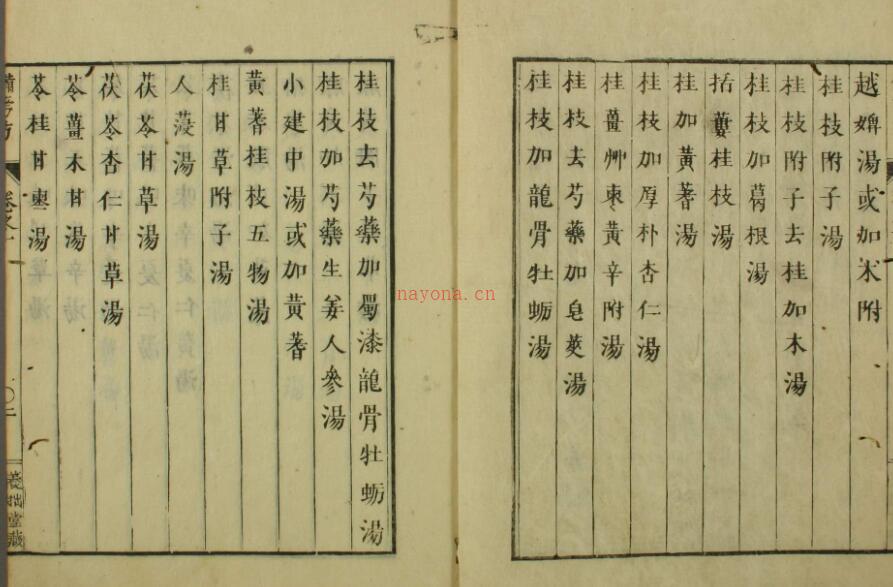 越婢湯或加术附
桂枝附子湯
桂枝附子去桂加木湯
桂枝加葛根湯
括蔞桂枝湯
桂加黃蓍湯
桂枝加厚朴杏仁湯
桂薑艸棗黃辛附湯
桂枝去芍藥加皂莢湯
桂枝加龍骨牡蛎湯
桂枝去芍藥加蜀漆龍骨牡蛎湯
桂枝加芍藥生姜人參湯
小建中湯或加黃蓍
黃蓍桂枝五物湯
桂甘草附子湯
人參湯
茯苓甘草湯
茯苓杏仁甘草湯
苓薑木甘湯
苓桂甘棗湯
備考方
卷之一
〇二
養拙堂藏
nayona.cn